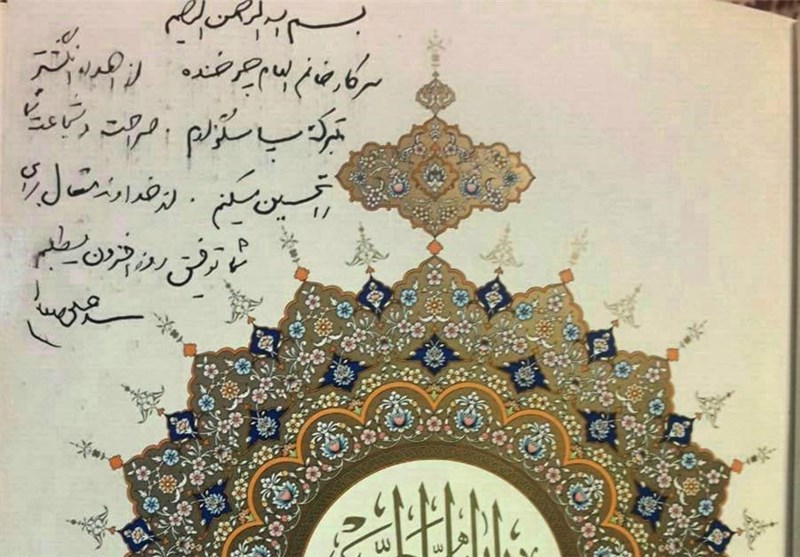 بسم الله الرحمن الرحیم
سرکار خانم الهام چرخنده از اهداء انگشتر
متبرکه سپاسگزارم. صراحت و شجاعت شما
را تحسین میکنم. از خداوند متعال برای
شما توفیق روزافزون میطلبم
سید